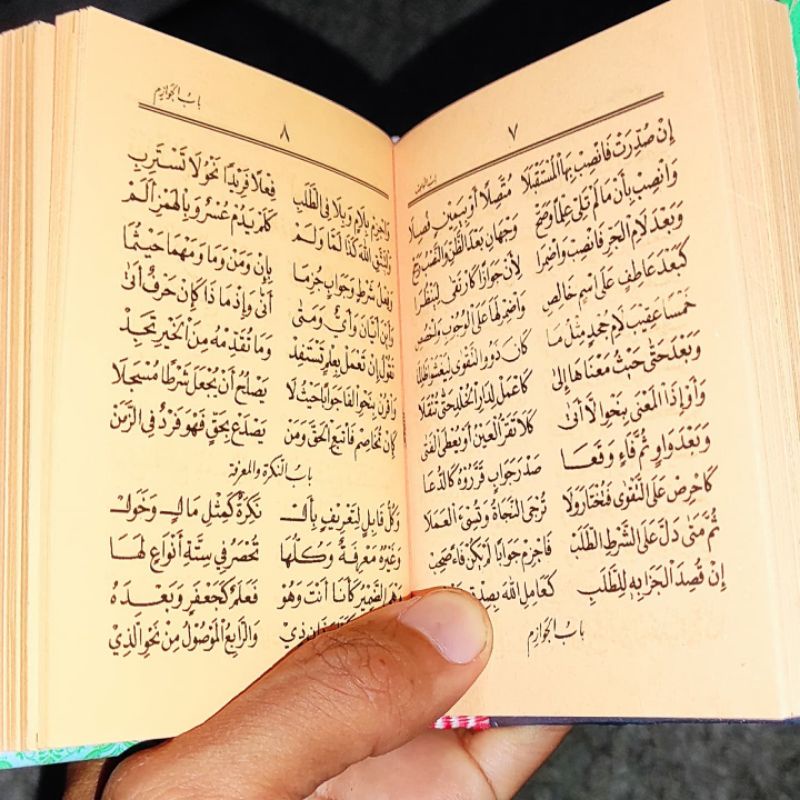 ٧
إِنْ صُدِّرَتْ فَانْصِبْ بِهَا الْمُسْتَقْبَلَا مُتَّصِلًا أَوْ بِيَمِينٍ فُصِلَا
وَانْصِبْ بِأَنْ مَا لَمْ تَلِي عِلْمًا وَضَحْ وَجْهَانِ بَعْدَ الظَّنِّ وَالنَّصْبُ رَجَحْ
وَبَعْدَ لَامِ الْجَرِّ فَانْصِبْ وَأَضْمِرَا لِأَنْ جَوَازًا كَارْتَقَى لِيَنْظُرَا
كَبَعْدَ عَاطِفٍ عَلَى اسْمٍ خَالِصِ وَأَضْمِرْ لَهَا عَلَى الْوُجُوبِ وَاخْصُصِ
خَمْسًا عَقِيبَ لَامِ جُحْدٍ مِثْلُ مَا كَانَ ذَوُو التَّقْوَى لِيَغْشَوْا ظَالِمًا
وَبَعْدَ حَتَّى حَيْثُ مَعْنَاهَا إِلَى كَاعْمَلْ لِدَارِ الْخُلْدِ حَتَّى تُنْقَلَا
وَأَوْ إِذَا الْمَعْنَى بِنَحْوِ إِلَّا أَتَى كَلَا تَقَرُّ الْعَيْنُ أَوْ يُعْطَى الْفَتَى
وَبَعْدَ وَاوٍ ثُمَّ فَاءٍ وَقَعَا صَدْرَ جَوَابٍ قَرَّرُوهُ كَالدُّعَا
كَاحْرِصْ عَلَى التَّقْوَى فَتُخْتَارَ وَلَا تُرْجَى النَّجَاةُ وَتُسِيءَ الْعَمَلَا
ثُمَّ مَتَى دَلَّ عَلَى الشَّرْطِ الطَّلَبْ فَاجْزِمْ جَوَابًا لَمْ يَكُنْ فَاءً صَحِبْ
إِنْ قُصِدَ الْجَزَا بِهِ لِلطَّلَبِ كَعَامِلِ اللهَ بِصِدْقٍ
بَابُ الْجَوَازِمِ
بَابُ الْجَوَازِمِ
٨
وَاجْزِمْ بِلَامٍ وَبِلَا فِي الطَّلَبِ فِعْلًا فَرِيدًا نَحْوُ لَا تَسْتَرِبِ
وَلْيَتَّقِ اللهَ كَذَا لَمَّا وَلَمْ كَلَمْ يَدُمْ عُسْرٌ وَبِالْهَمْزِ أَلَمْ
وَفِعْلُ شَرْطٍ وَجَوَابٍ جُزِمَا بِإِنْ وَمَنْ وَمَا وَمَهْمَا حَيْثُمَا
وَأَيْنَ أَيَّانَ وَأَيٍّ وَمَتَى أَنَّى وَإِذْ مَا ذَا كَإِنْ حَرْفٌ أَتَى
تَقُولُ إِنْ تَعْمَلْ بِعِلْمٍ تَسْتَفِدْ وَمَا تُقَدِّمْهُ مِنَ الْخَيْرِ تَجِدْ
وَاقْرِنْ بِنَحْوِ الْفَا جَوَابًا حَيْثُ لَا يَصْلُحُ أَنْ يُجْعَلَ شَرْطًا مُسْجَلَا
كَإِنْ تُخَاصِمْ فَاتَّبِعِ الْحَقَّ وَمَنْ يَصْدَعْ بِحَقٍّ فَهْوَ فَرْدٌ فِي الزَّمَنْ
بَابُ النَّكِرَةِ وَالْمَعْرِفَةِ
وَكُلُّ قَابِلٍ لِتَعْرِيفٍ بِأَلْ نَكِرَةٌ كَمِثْلِ مَالٍ وَخَوَلْ
وَغَيْرُهُ مَعْرِفَةٌ وَكُلُّهَا تُحْصَرُ فِي سِتَّةِ أَنْوَاعٍ لَهَا
وَهُمُ الضَّمِيرُ كَأَنَا أَنْتَ وَهُوْ فَعَلَمٌ كَجَعْفَرٍ وَبَعْدَهُ
ذِيْ وَالرَّابِعُ الْمَوْصُولُ مِنْ نَحْوِ الَّذِيْ